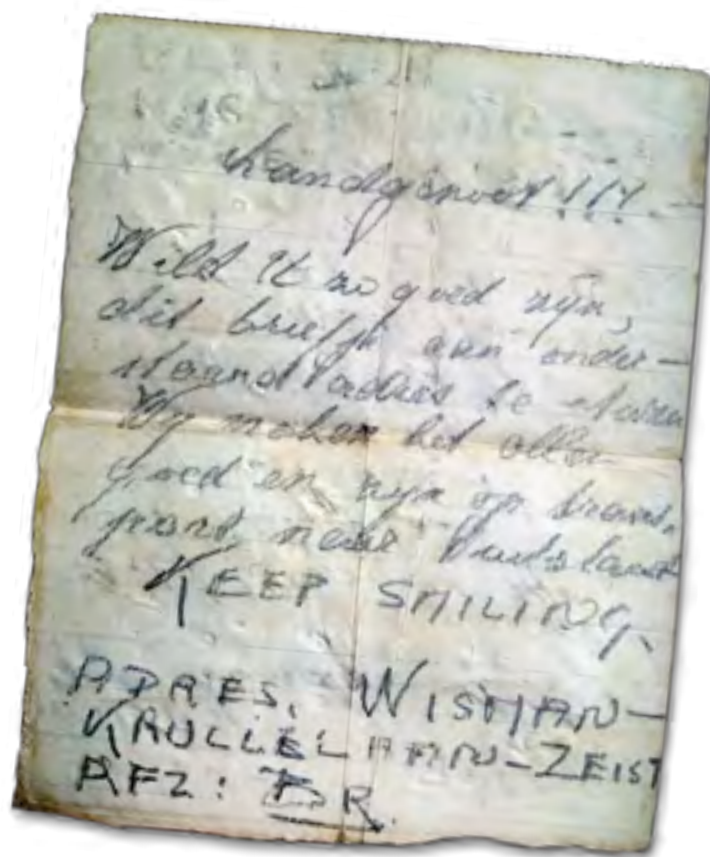 Landgenoot!!!.—
Wilt U zo goed zijn,
dit briefje aan onder-
staand adres te sturen
Wij maken het allen
goed en zijn op trans-
port naar Duitsland
KEEP SMILING.
ADRES. WISMAN-
KRULLELAAN-ZEIST
AFZ: BR.